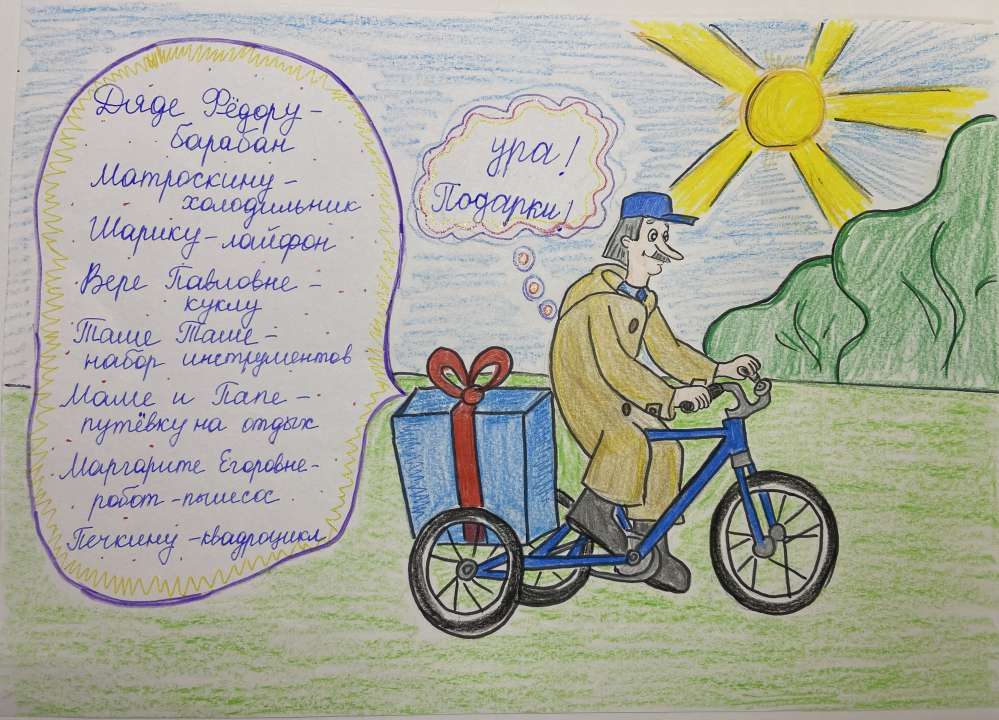 Дяде Фёдору -
барабан
Матроскину -
холодильник
Шарику - лайфон
Вере Павловне -
куклу
Таше Таше -
набор инструментов
Маме и Папе -
путёвку на отдых
Маргарите Егоровне -
робот - пылесос
Печкину - квадроцикл
ура!
Подарки!